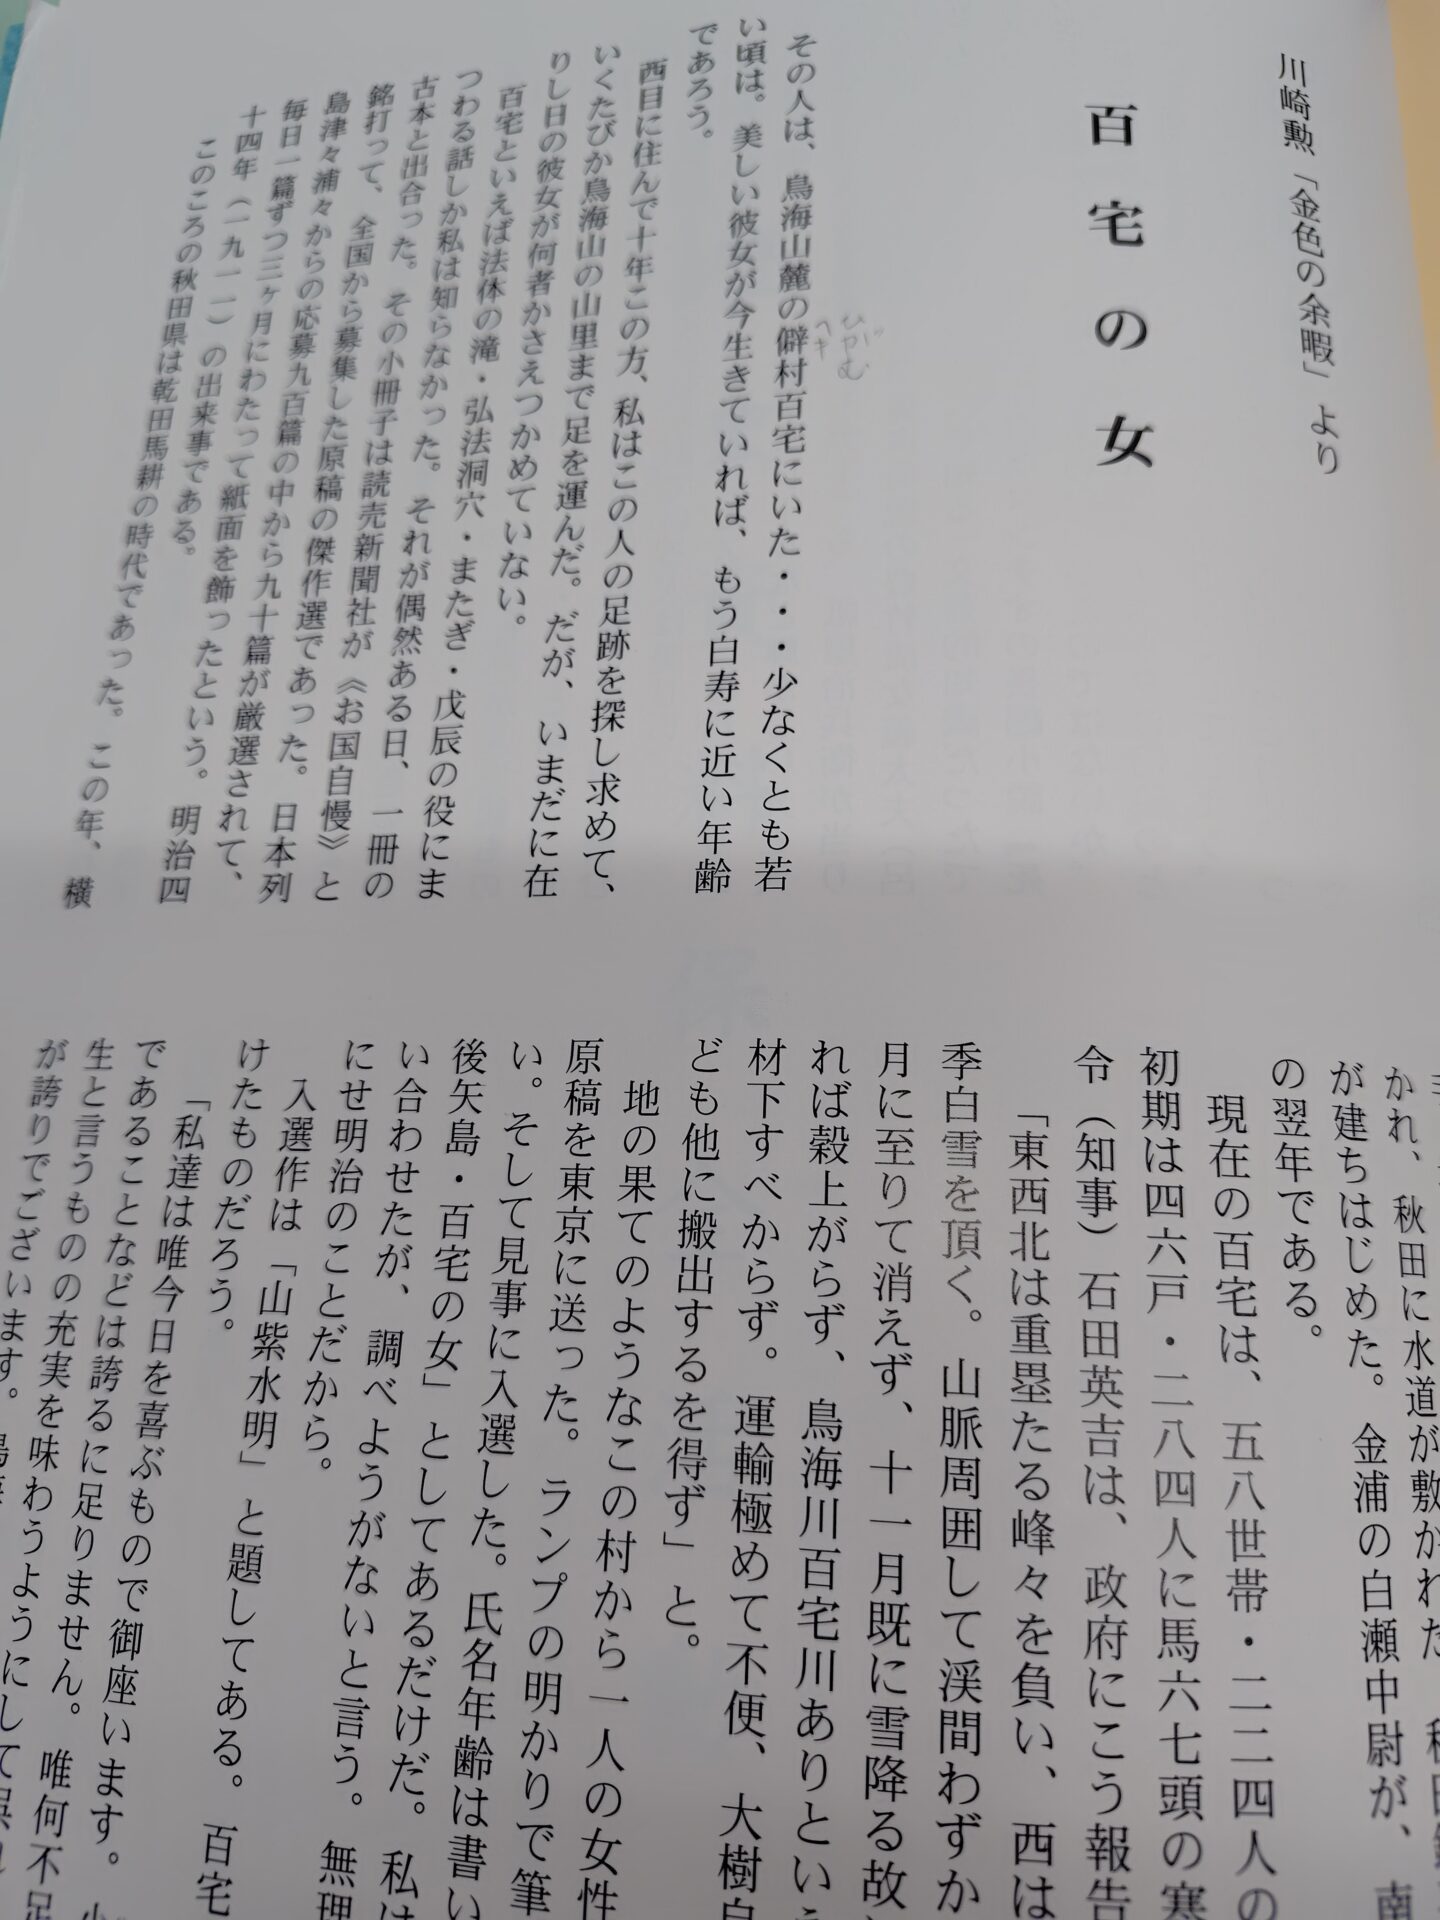 川崎勲「金色の余暇」より
百宅の女
その人は、鳥海山麓の僻村百宅にいた・・・少なくとも若
ひがむ
ヘキ
い頃は。美しい彼女が今生きていれば、もう白寿に近い年齢
であろう。
西目に住んで十年この方、私はこの人の足跡を探し求めて、
いくたびか鳥海山の山里まで足を運んだ。だが、いまだに在
りし日の彼女が何者かさえつかめていない。
百宅といえば法体の滝・弘法洞穴・またぎ・戊辰の役にま
つわる話しか私は知らなかった。それが偶然ある日、一冊の
古本と出合った。その小冊子は読売新聞社が《お国自慢》と
銘打って、全国から募集した原稿の傑作選であった。日本列
島津々浦々からの応募九百篇の中から九十篇が厳選されて、
毎日一篇ずつ三ヶ月にわたって紙面を飾ったという。明治四
十四年（一九一一）の出来事である。
このころの秋田県は乾田馬耕の時代であった。この年、横
かれ、秋田に水道が敷かれた
が建ちはじめた。金浦の白瀬中尉が、南
の翌年である。
現在の百宅は、五八世帯・二二四人の
初期は四六戸・二八四人に馬六七頭の寒
令（知事）石田英吉は、政府にこう報告
「東西北は重塁たる峰々を負い、西は
季白雪を頂く。山脈周囲して渓間わずか
月に至りて消えず、十一月既に雪降る故
れば穀上がらず、鳥海川百宅川ありとい
材下すべからず。運輸極めて不便、大樹
ども他に搬出するを得ず」と。
地の果てのようなこの村から一人の女性
原稿を東京に送った。ランプの明かりで筆
い。そして見事に入選した。氏名年齢は書い
後矢島・百宅の女」としてあるだけだ。私は
い合わせたが、調べようがないと言う。無理
にせ明治のことだから。
入選作は「山紫水明」と題してある。百宅
けたものだろう。
「私達は唯今日を喜ぶもので御座います。
であることなどは誇るに足りません。唯何不足
生と言うものの充実を味わうようにして
が誇りでございます。